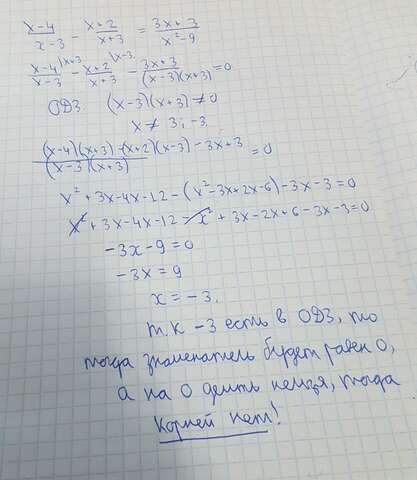 x-4/x-3 - x+2/x+3 = 3x+3/x²-9
x-4|x+3/x-3 - x+2|x-3/x+3 - 3x+3/(x-3)(x+3) = 0
ОДЗ. (x-3)(x+3) ≠ 0
x ≠ 3; -3.
(x-4)(x+3) -(x+2)(x-3) - 3x+3/(x-3)(x+3) = 0
x² + 3x-4x-12 - (x²-3x+2x-6) -3x-3=0
x² + 3x-4x-12 - x² + 3x-2x+6 -3x-3=0
-3x-9 = 0
-3x = 9
x = -3.
т.к -3 есть в ОДЗ, то
тогда знаменатель будет равен 0,
а на 0 делить нельзя, тогда
корней нет!